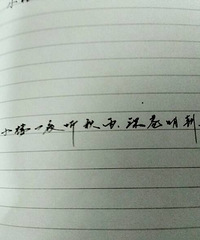 小楼一夜听秋雨.深巷明朝